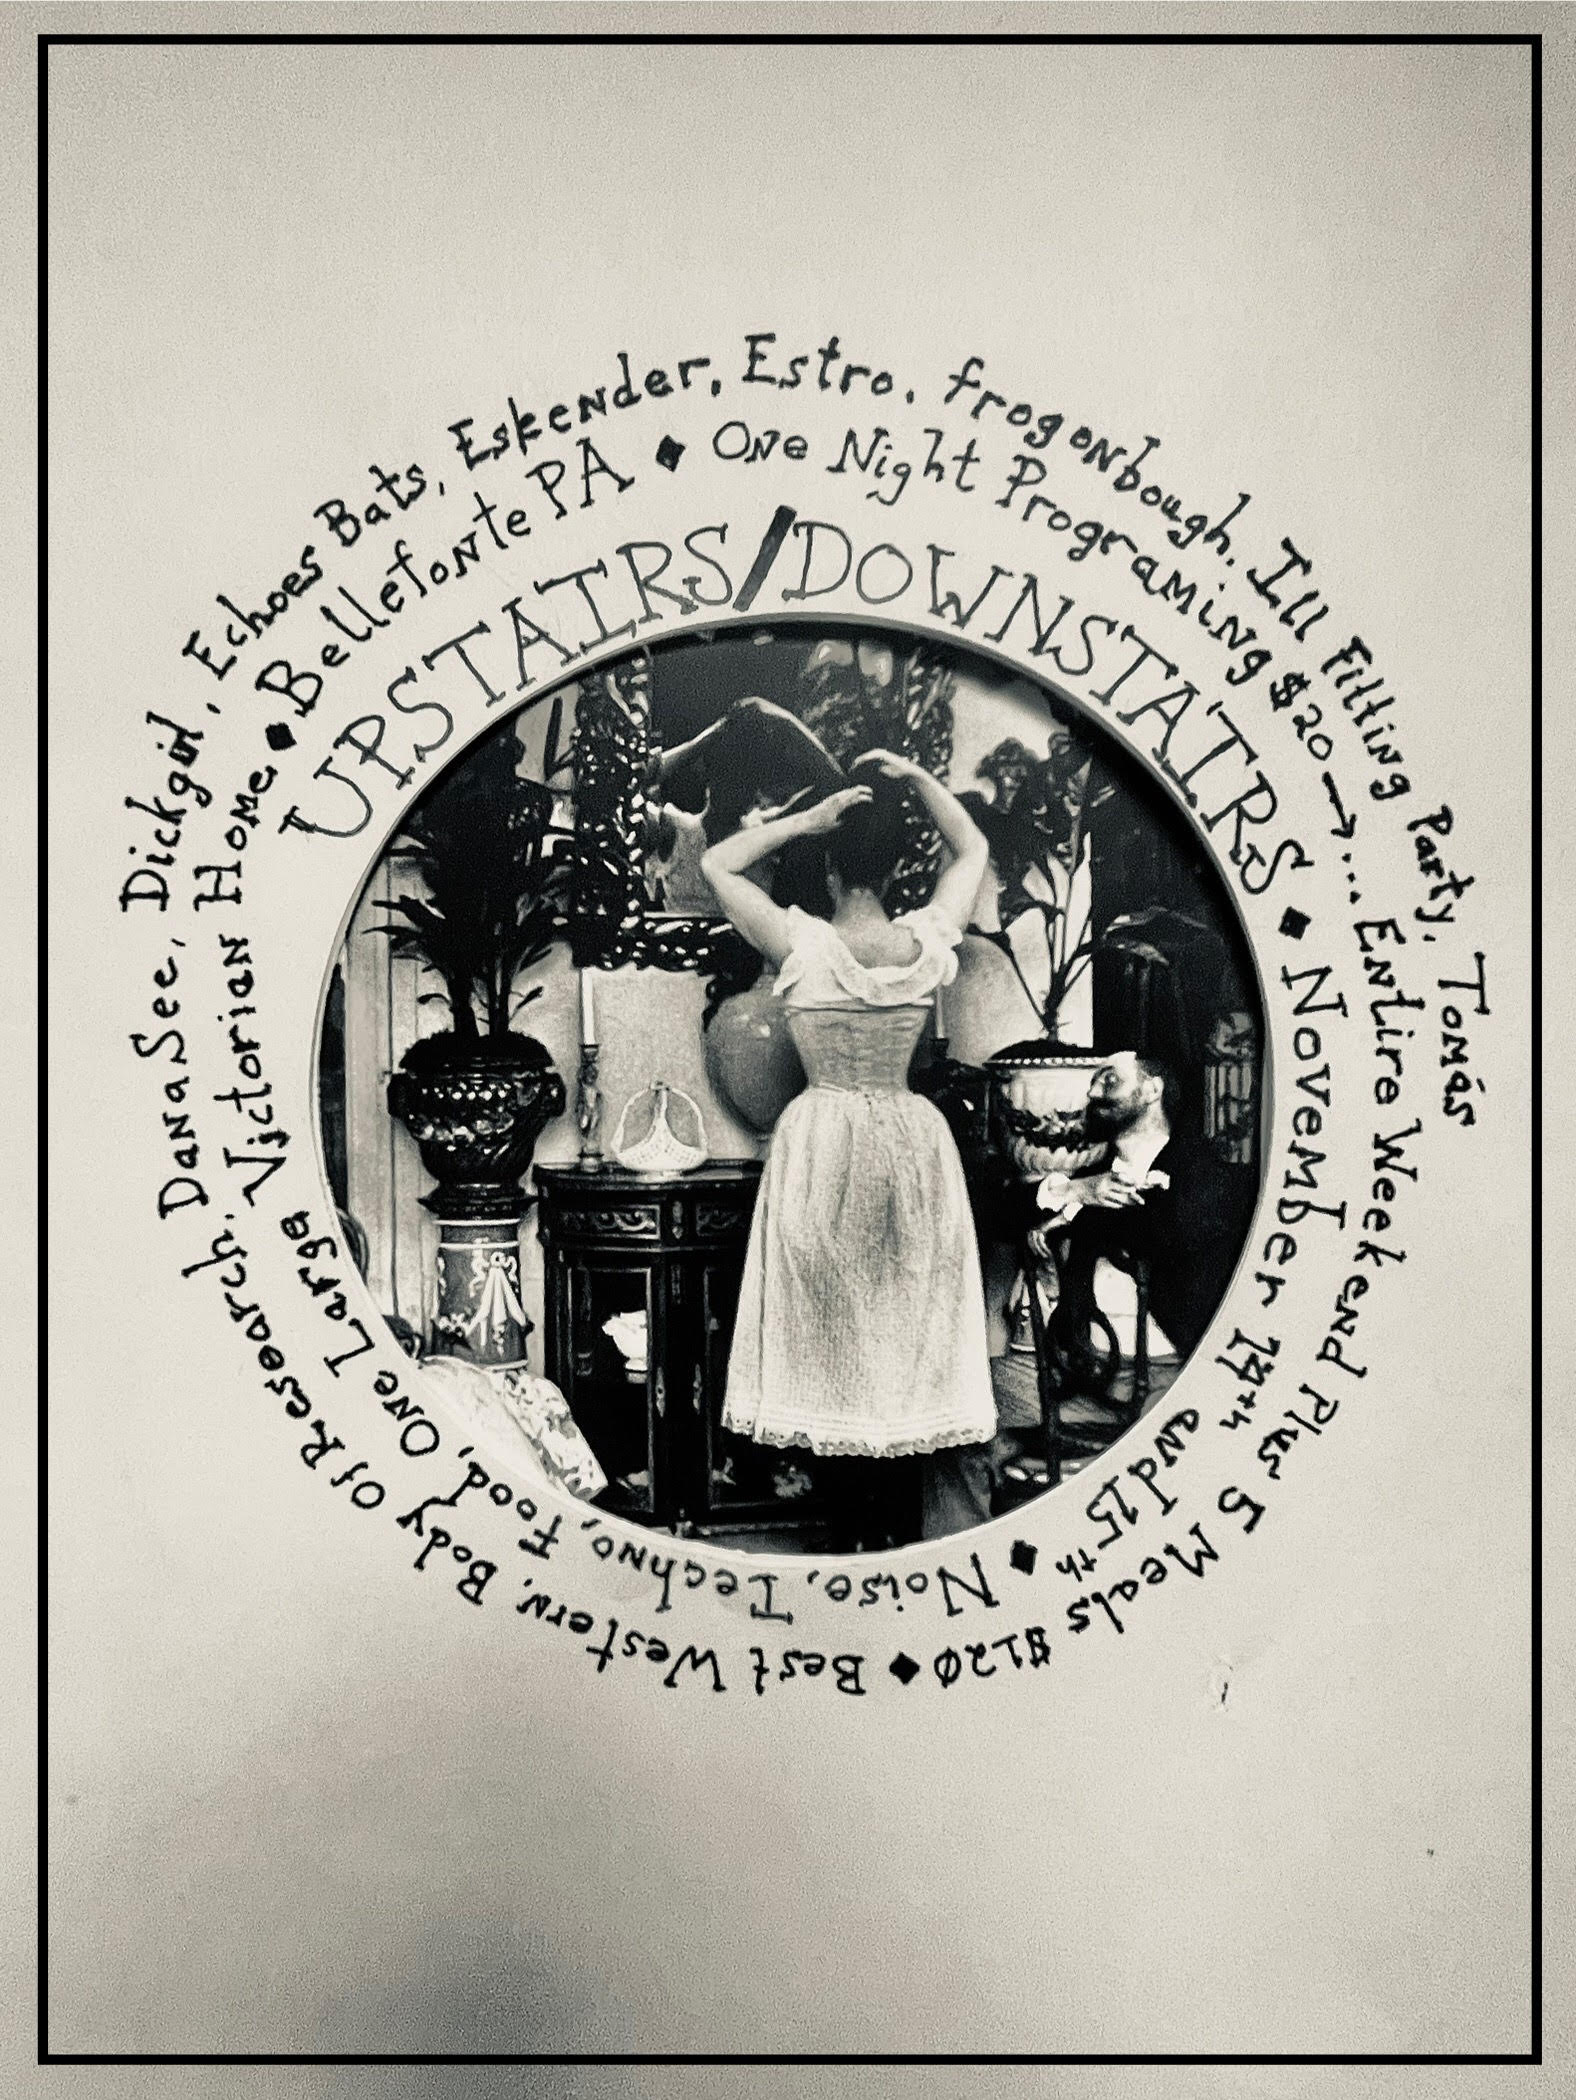 UPSTAIRS/DOWNSTAIRS ◆ November 14th and 15th ◆ Noise, Techno, Food, One Large Victorian Home ◆ Bellefonte PA ◆ One Night Programing $20 → ... Entire Weekend Plus 5 Meals $120 ◆ Best Western, Body Of Research, DanaSee, Dickgirl, Echoes Bats, Eskender, Estro, frogonbough, Ill Fitting Party, Tomás